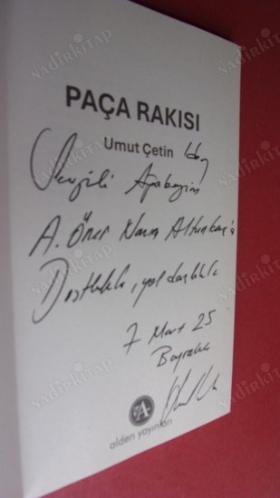 PAÇA RAKISI
Umut Çetin'den
Sevgili Ağabeyim
A. Öner
Dostlukla, yoldaşlıkla
7 Mart 25
Bayraklı
A
alden yayınları
NADİRKİTAP